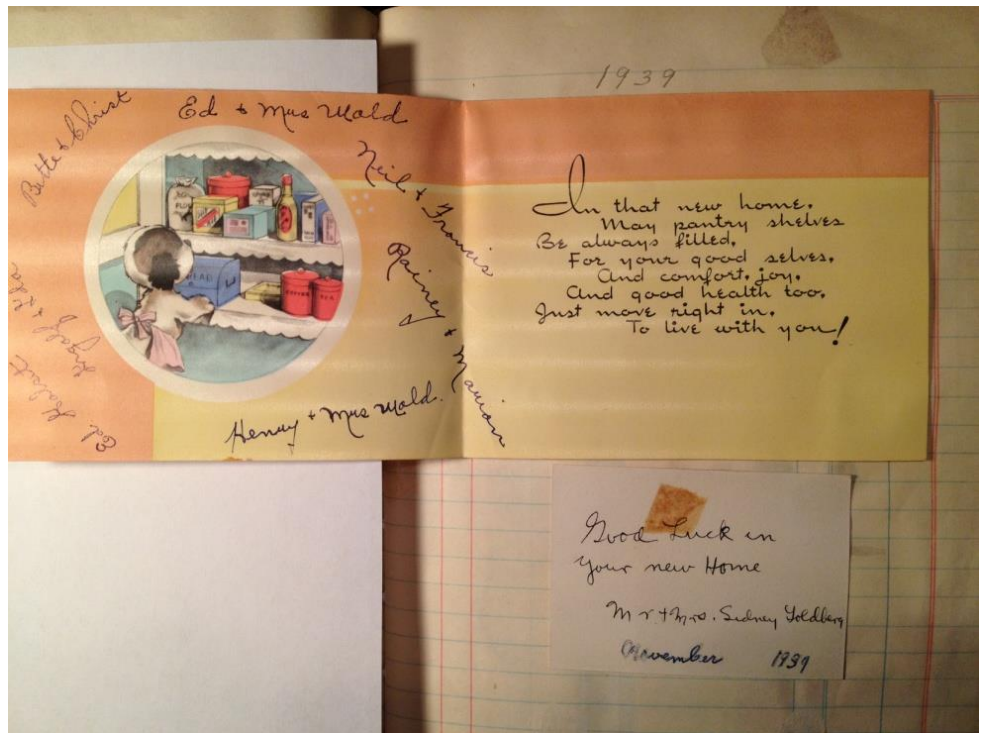 1939
Ed + Mrs Wold
Bette & Christ
Neil + Francis
Rainey + Marion
Henry + Mrs Wold.
Ed.
In that new home.
May pantry shelves
Be always filled,
For your good selves.
And comfort, joy,
And good health too,
Just move right in,
To live with you!
Good Luck in
your new Home
Mr + Mrs. Sidney Goldberg
November 1939